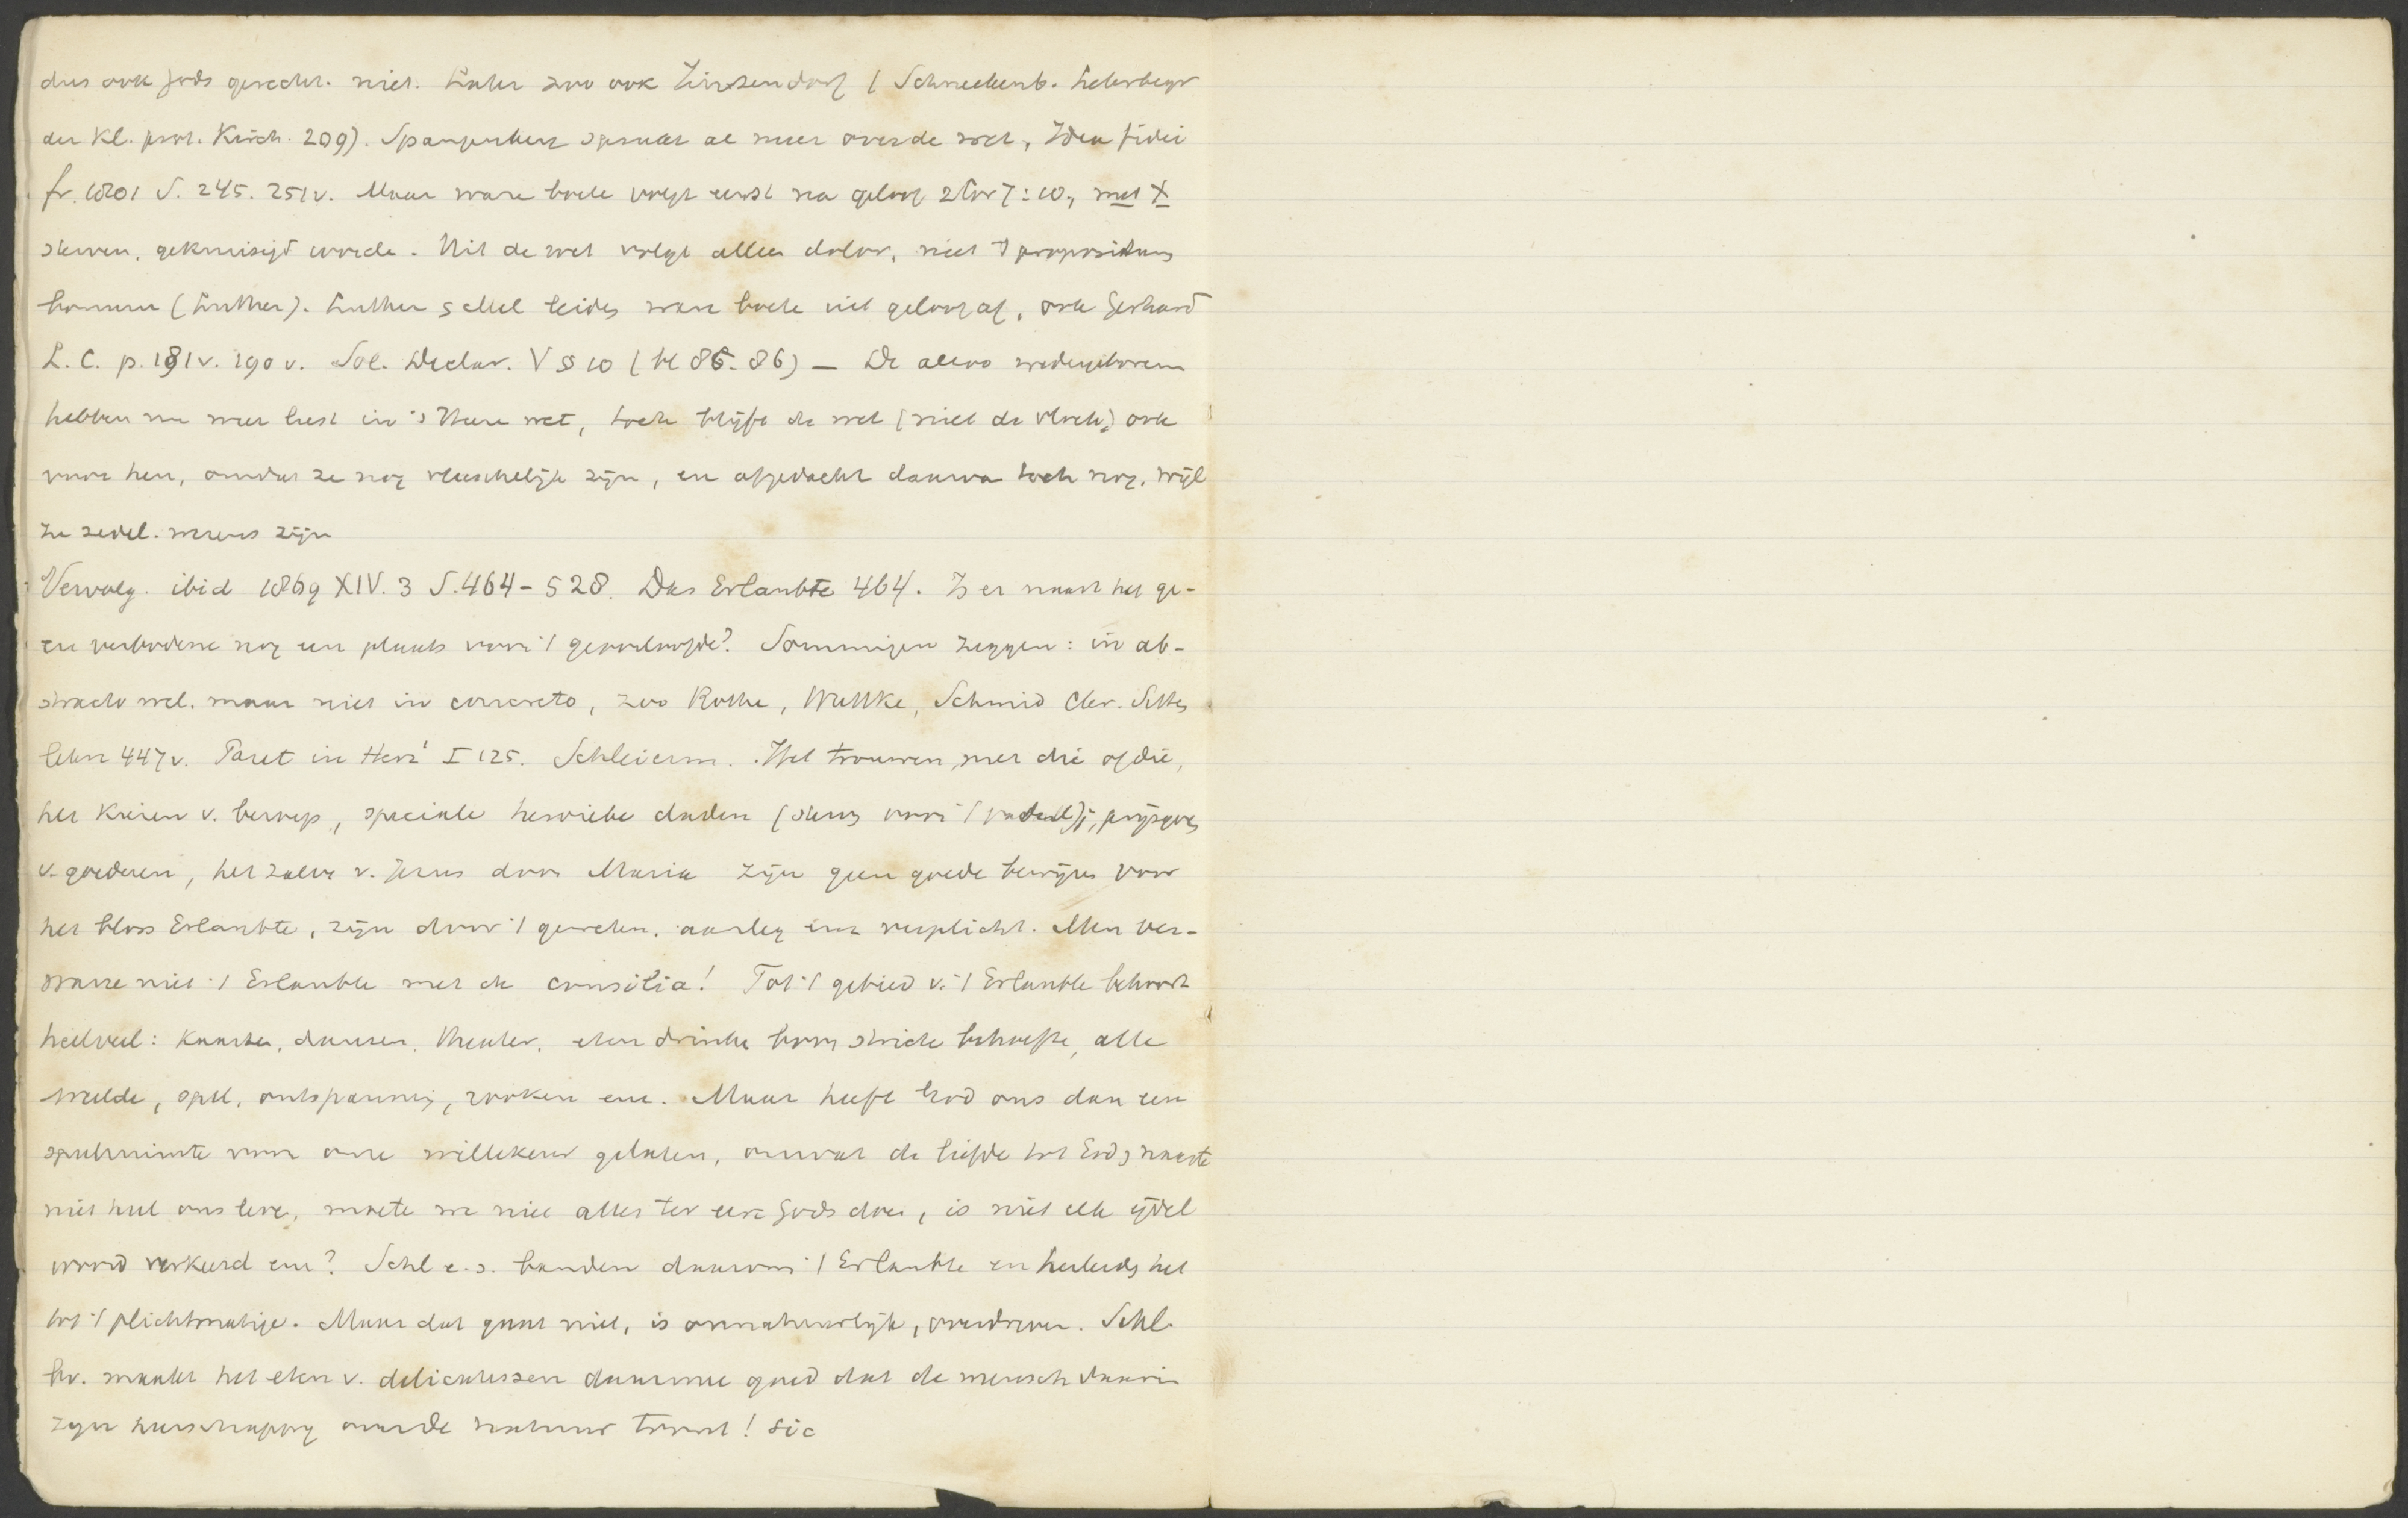 dus ook Gods gerecht. niet. Later zoo ook Zinzendorf (Schneckenb. Lehrbegr
der Kl. prot. Kirch. 209). Spangenberg spreekt al meer over de wet, Idea fidei
fr. 1801 S. 245. 251v. Maar ware boete volgt eerst na geloof 2 Cor 7:10, met X
sterven, gekruisigd worde. Uit de wet volgt alleen dolor, niet 't propositum
bonum (Luther). Luther zelf leidez ware boete uit geloof af, ook Gerhard
L. C. p. 181v. 190v. Sol. Declar. V § 10 (bl 85-86) — De alzoo wedergeboren
hebben nu meer lust in 's Heere wet, toch blijft de wet (niet de vloek) ook
voor hen, omdat ze nog vleeschelijk zijn, en afgedacht daarva toch nog, wijl
ze zedel. mens zijn
Vervolg. ibid 1869 XIV. 3 S. 464-528. Das Erlaubte 464. Is er naast het ge-
en verbodene nog een plaats voor 't geoorloofde? Sommigen zeggen: in ab-
stracto wel. maar niet in concreto, zoo Rothe, Wuttke, Schmid Chr. Sitten
lehre 447v. Paret in Herz' I 125. Schleierm. Het trouwen met die of die,
het kiezen v. beroep, speciale heroieke daden (sterv voor 't vaderl), prijsgeve
v. goederen, het zalve v. Jezus door Maria zijn geen goede bewijzen voor
het bloss Erlaubte, zijn door 't geweten, aanleg enz verplicht. Men ver-
warre niet 't Erlaubte met de consilia! Tot 't gebied v. 't Erlaubte behoort
heelveel: kaarten, dansen, theater, eten drinke boven strikte behoefte, alle
weelde, spel, ontspanning, rooken enz. Maar heeft God ons dan een
speelruimte voor onze willekeur gelaten, omvat de liefde tot God & naaste
niet heel ons leve, moete we niet alles ter eere Gods doen, is niet elk ijdel
woord verkeerd enz? Schl e.a. banden daarom 't Erlaubte en herleidden het
tot 't plichtmatige. Maar dat gaat niet, is onnatuurlijk, overdreven. Schl.
bv. maakt het eten v. delicatessen daarmee goed dat de mensch daarin
zijn heerschappij over de natuur toont! sic